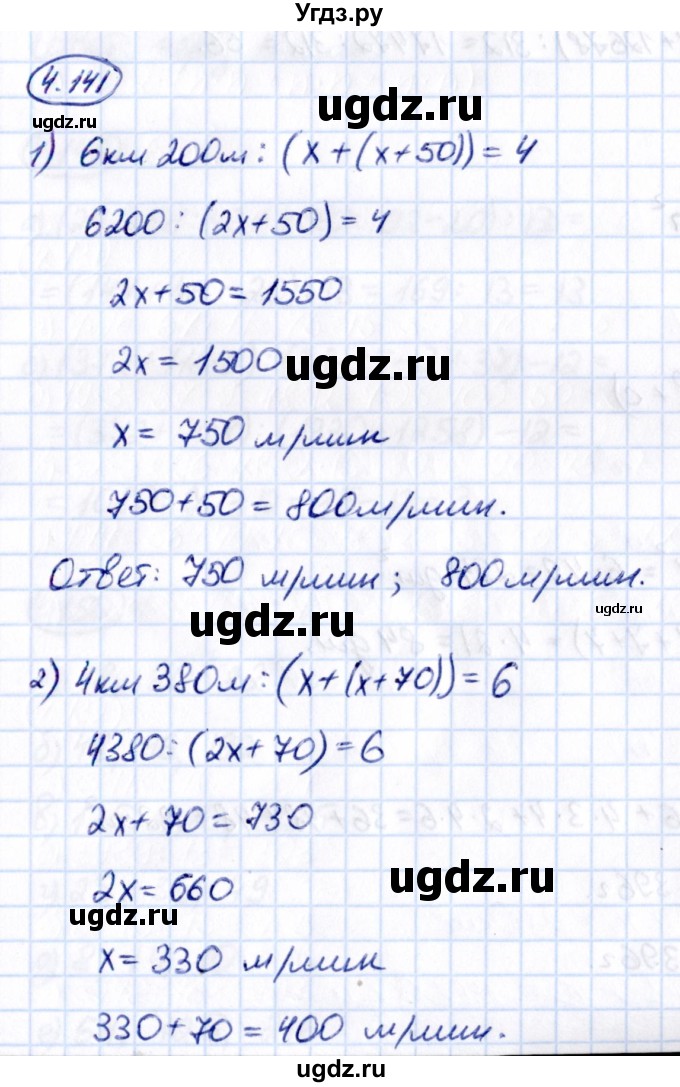 Угдз.ру
4.141
ugdz.ru
ugdz.ru
1) 6км 200м : (x + (x+50)) = 4
6200 : (2x+50) = 4
2x+50 = 1550
2x = 1500
ugdz.ru
x = 750 м/мин
750+50 = 800м/мин.
Ответ: 750 м/мин; 800м/мин.
ugdz.ru
ugdz.ru
2) 4км 380м : (x+(x+70)) = 6
4380 : (2x+70) = 6
2x+70 = 730
2x = 660
ugdz.ru
ugdz.ru
x = 330 м/мин
330+70 = 400 м/мин.
ugdz.ru